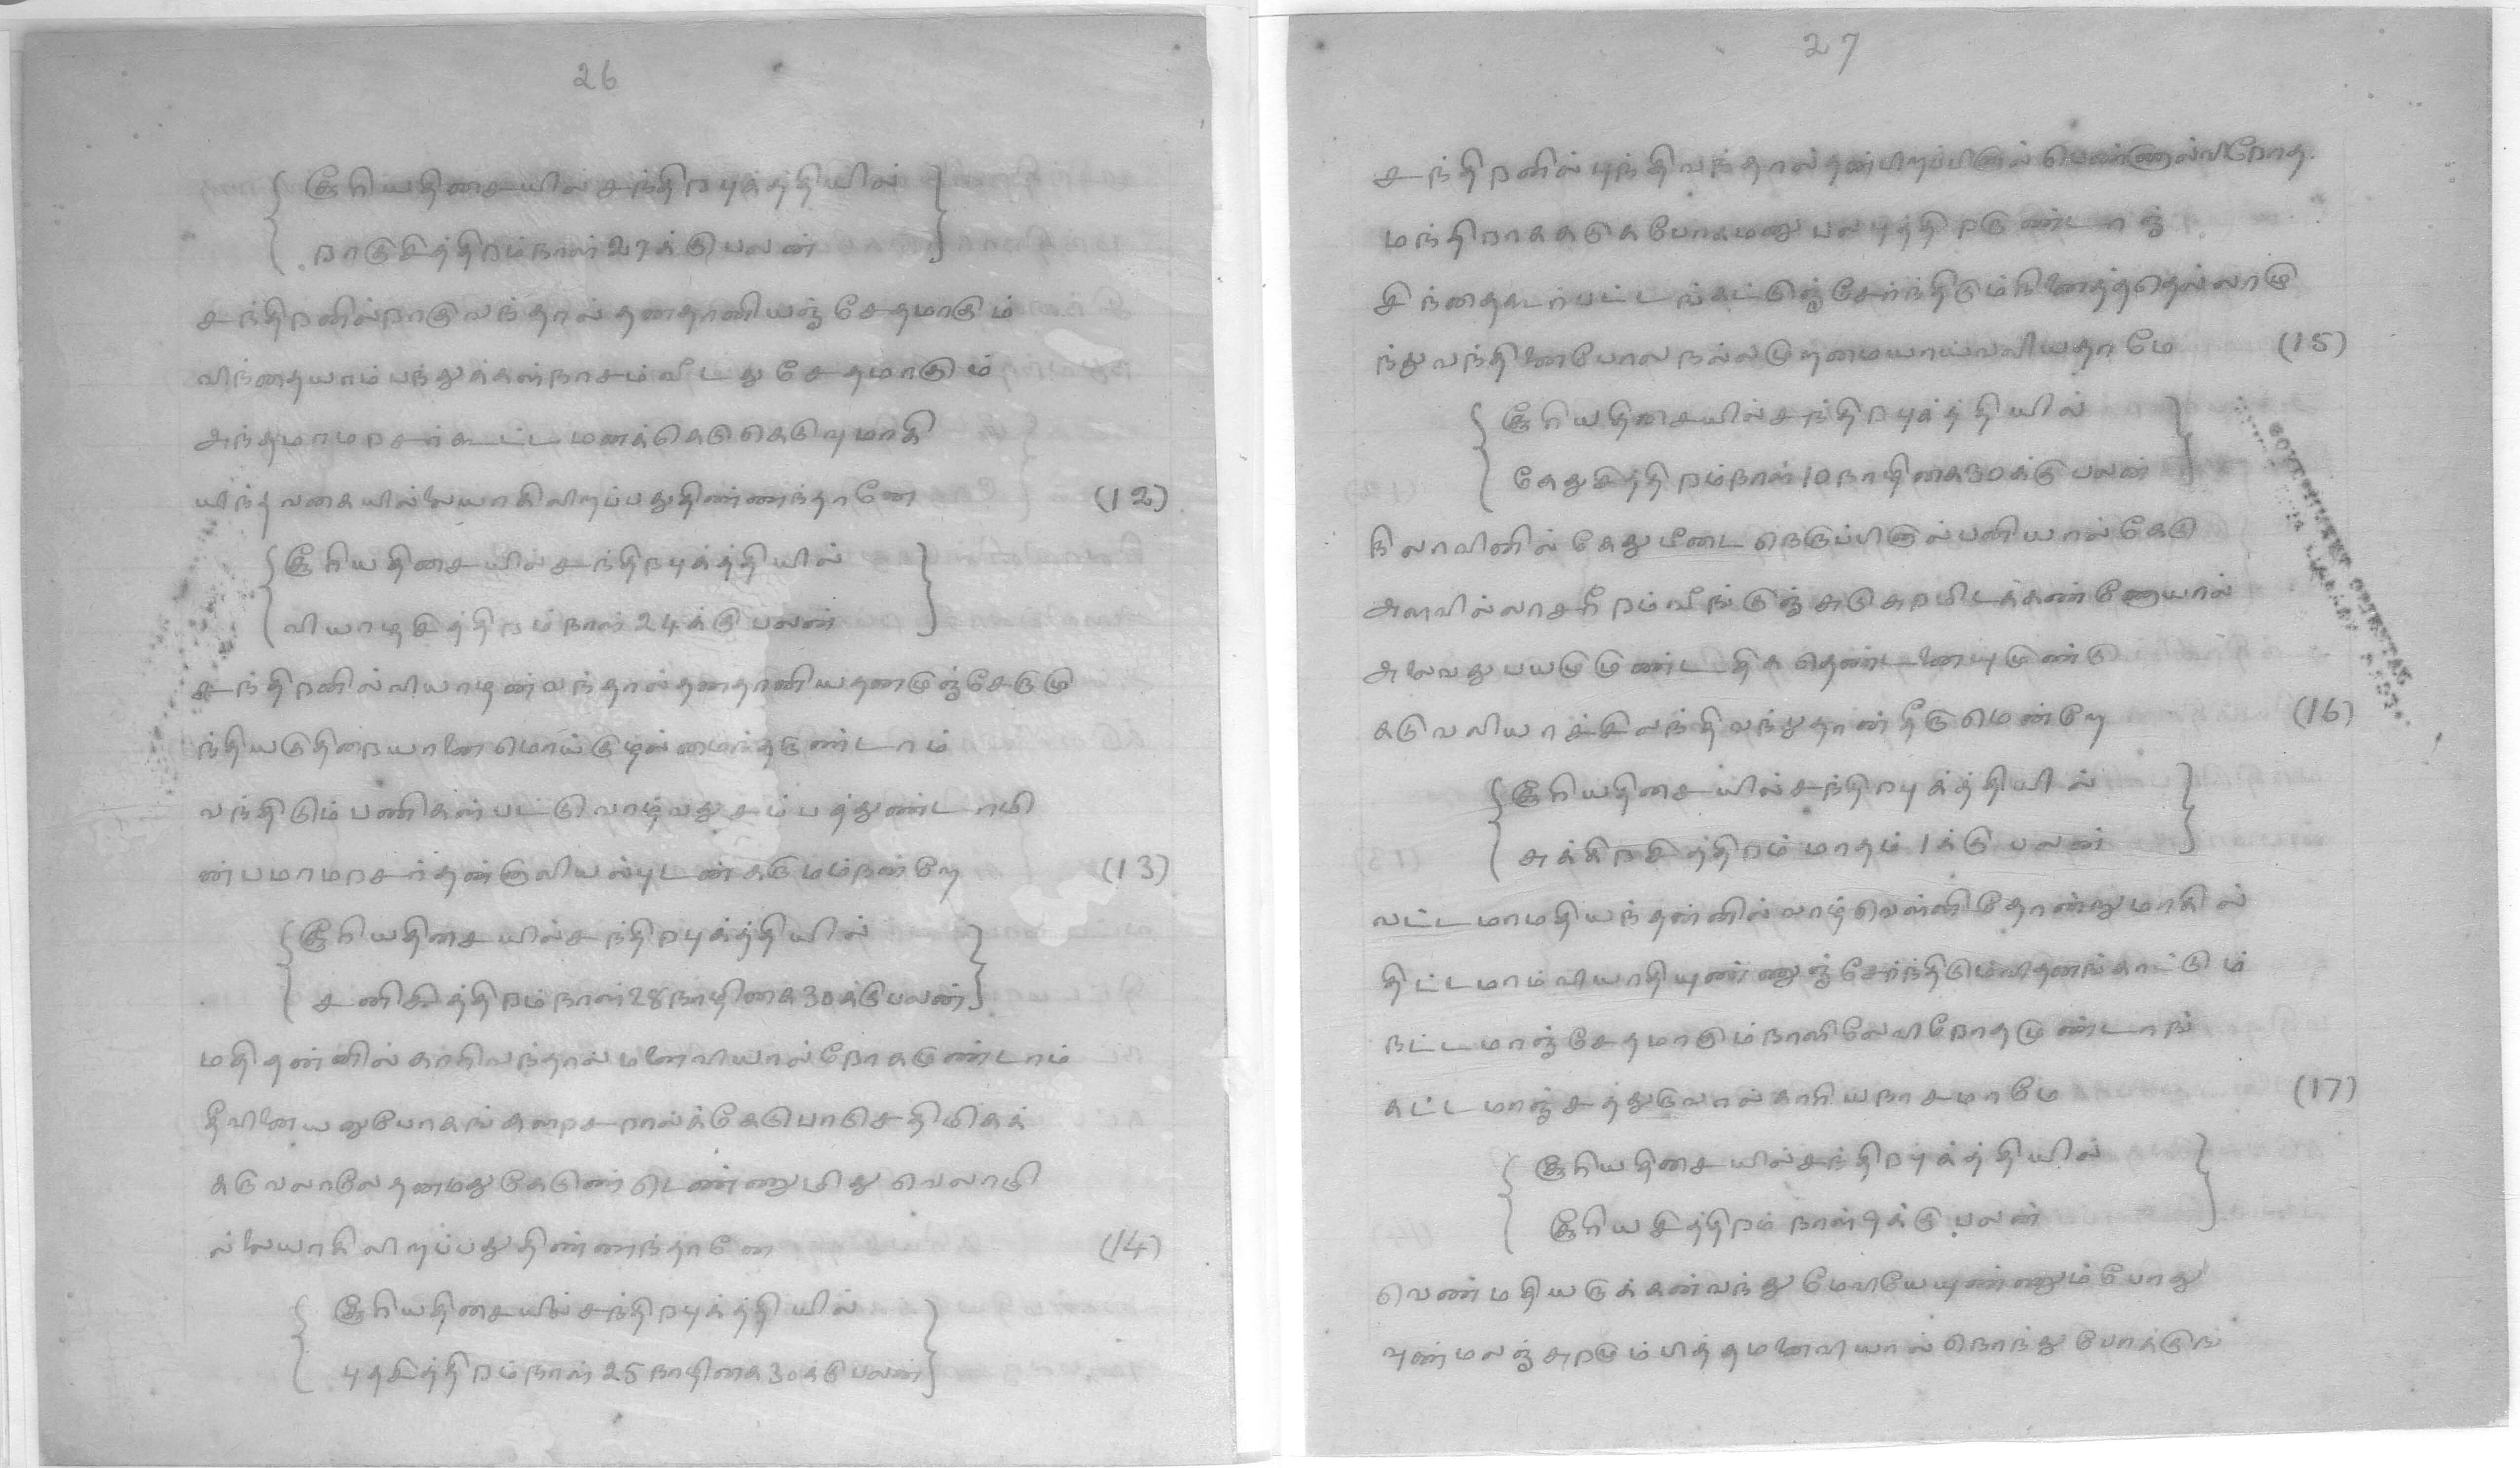 26
சூரியதிசையில்சந்திரபுக்த்தியில்
றாகுசித்திரம்நாள்27க்குபலன்
சந்திரனில்றாகுவந்தால்தனதானியஞ்சேதமாகும்
விந்தையாம்பந்துக்கள்நாசம்வீடதுசேதமாகும்
அந்தமாமரசர்கூட்டமனக்கெடுகெடுவுமாகி
யிந்தவகையில்லையாகிலிறப்பதுதிண்ணந்தானே (12)
சூரியதிசையில்சந்திரபுக்த்தியில்
வியாழசித்திரம்நாள்24க்குபலன்
சந்திரனில்வியாழன்வந்தால்தனதானியதனமுஞ்சேருமு
ந்தியகுதிரையானைமொய்குழல்மைந்தருண்டாம்
வந்திடும்பணிகள்பட்டுவாழ்வதுசம்பத்துண்டாமி
ன்பமாமரசர்தன்குவியல்புடன்கருமம்நன்றே (13)
சூரியதிசையில்சந்திரபுக்த்தியில்
சனிசித்திரம்நாள்28நாழிகை30க்குபலன்
மதிதன்னில்காரிவந்தால்மனைவியால்றோகமுண்டாம்
தீவினையனுபோகங்களரசரால்க்கேடுபாடுசதிமிகக்
கருவலாலேதனமதுகேடுண்டெண்ணுமிதுவெலாமி
ல்லையாகிலிறப்பதுதிண்ணந்தானே (14)
சூரியதிசையில்சந்திரபுக்த்தியில்
புதசித்திரம்நாள்25நாழிகை30க்குபலன்
27
சந்திரனில்புந்திவந்தால்தன்பிறப்பினால்பெண்ணால்விரோத
மந்திராககடுகபோகமனுபவபுத்திரருண்டாஞ்
சிந்தைகூர்பட்டங்கட்டுஞ்சேர்ந்திடும்நினைத்ததெல்லாமு
ந்துவந்தினைபோலநல்லமுதமையாய்வலியதாமே (15)
சூரியதிசையில்சந்திரபுக்த்தியில்
கேதுசித்திரம்நாள்10நாழிகை30க்குபலன்
நிலாவினில்கேதுமீடைநெருப்பினால்பனியால்கேடு
அளவில்லாசரீரம்வீங்குஞ்சுடுசுரமிடக்கண்ணேயால்
அலைவதுபயமுமுண்டதிகதெண்டனையுமுண்டு
கடுவலியாச்சிலந்திவந்துதான்தீருமென்றே (16)
சூரியதிசையில்சந்திரபுக்த்தியில்
சுக்கிரசித்திரம்மாதம்1க்குபலன்
வட்டமாமதியந்தன்னில்வாழ்வெள்ளிதோன்றுமாகில்
திட்டமாம்வியாதியுண்ணுஞ்சேர்ந்திடும்விதனங்காட்டும்
நட்டமாஞ்சேதமாகும்நாளிலேவிரோதமுண்டாங்
கட்டமாஞ்சத்துருவால்காரியநாசமாமே (17)
சூரியதிசையில்சந்திரபுக்த்தியில்
சூரியசித்திரம்நாள்9க்குபலன்
வெண்மதியருக்கன்வந்துமேவியேயுண்ணும்போது
வுண்மலஞ்சுரமும்பித்தமனைவியால்நொந்துபோக்குங்